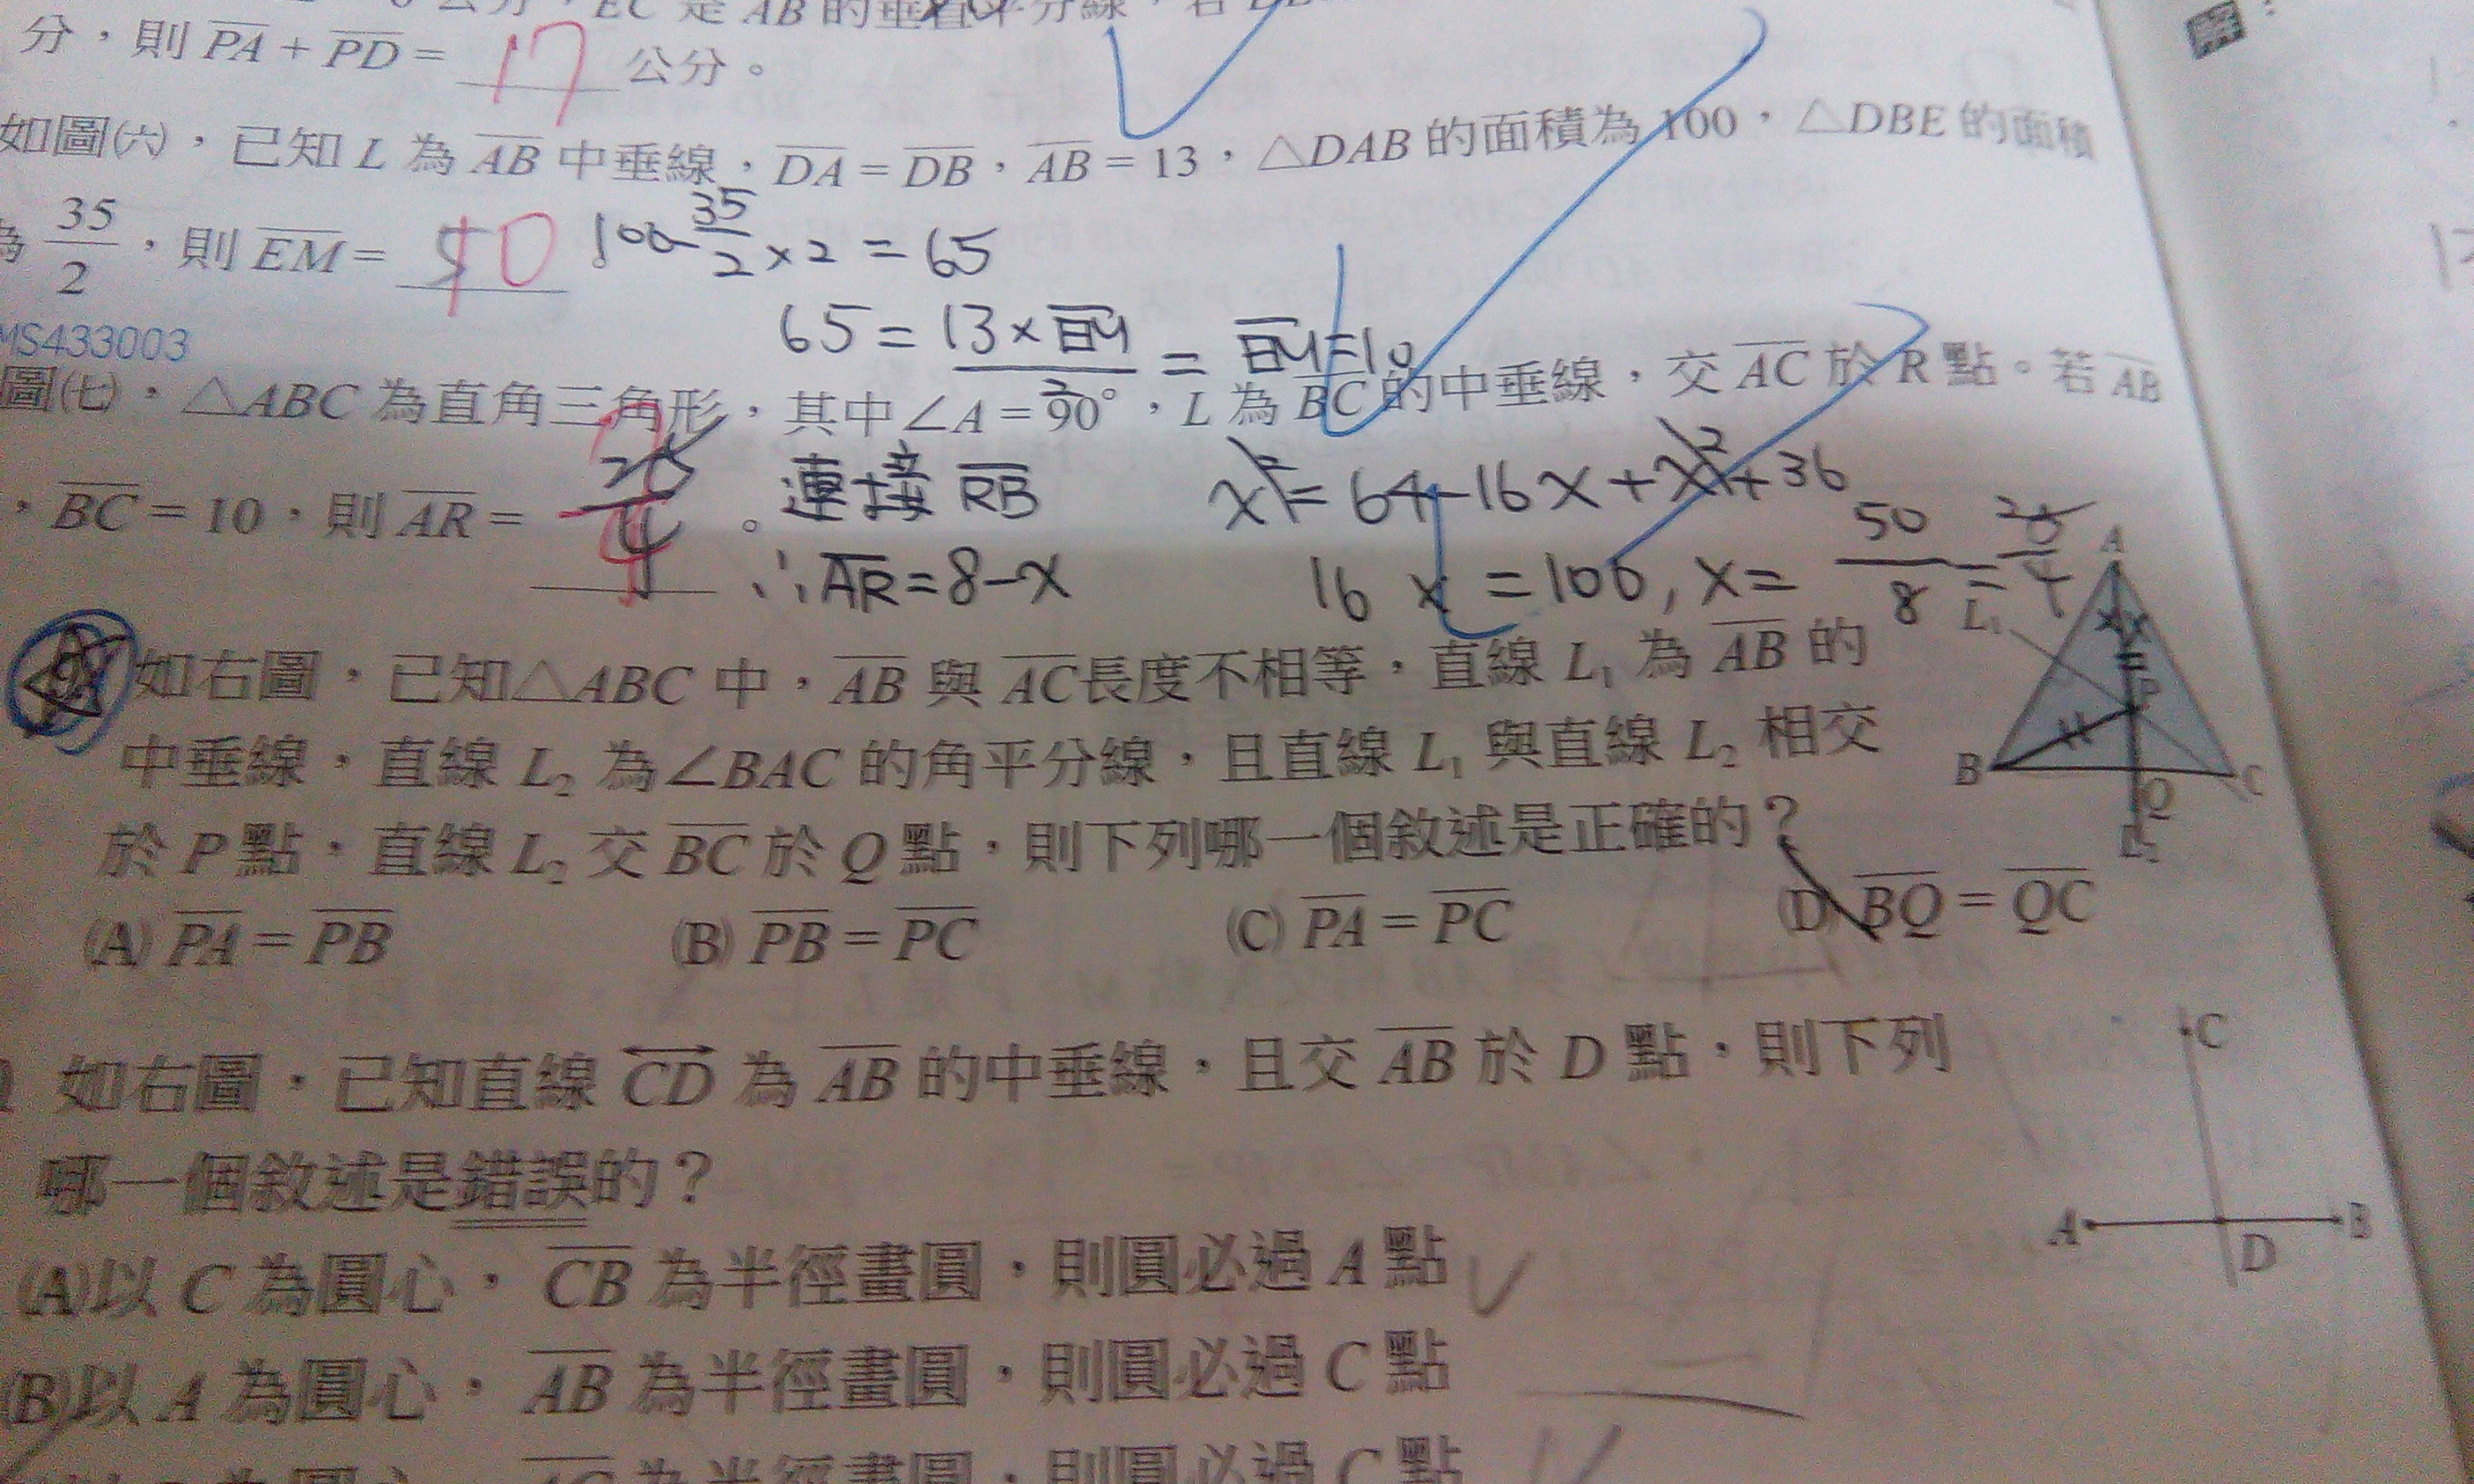 公分,EC 是 AB 的垂直平分線,若
分,則 PA + PD = 17 公分。
如圖(六),已知 L 為 AB 中垂線,DA = DB,AB = 13,△DAB 的面積為 100,△DBE 的面積
為 35/2,則 EM = 10 100 - 35/2 × 2 = 65
65 = 13 × EM / 2 = EM = 10
MS433003
圖(七),△ABC 為直角三角形,其中∠A = 90°,L 為 BC 的中垂線,交 AC 於 R 點。若 AB
,BC = 10,則 AR = 7/4 。連接 RB x² = 64 - 16x + x² + 36
∴ AR = 8 - x 16x = 100, x = 50/8 = 25/4
如右圖,已知△ABC 中,AB 與 AC 長度不相等,直線 L₁ 為 AB 的
中垂線,直線 L₂ 為∠BAC 的角平分線,且直線 L₁ 與直線 L₂ 相交
於 P 點,直線 L₂ 交 BC 於 Q 點,則下列哪一個敘述是正確的?
(A) PA = PB (B) PB = PC (C) PA = PC (D) BQ = QC
A
L₁
P
B
C
Q
L₂
如右圖,已知直線 CD 為 AB 的中垂線,且交 AB 於 D 點,則下列
哪一個敘述是錯誤的?
(A)以 C 為圓心,CB 為半徑畫圓,則圓必過 A 點
(B)以 A 為圓心,AB 為半徑畫圓,則圓必過 C 點
為圓心,AC 為半徑畫圓,則圓必過 C 點
C
A
B
D
解: